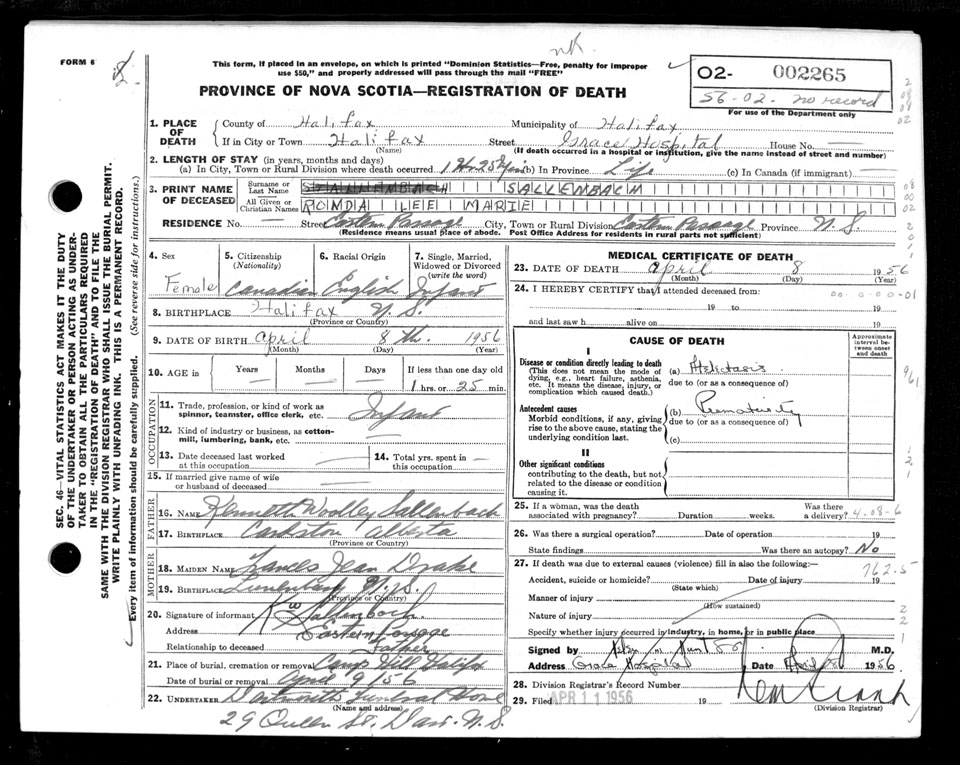 nk.
FORM 6
This form, if placed in an envelope, on which is printed "Dominion Statistics—Free, penalty for improper
use $50," and properly addressed will pass through the mail "FREE"
PROVINCE OF NOVA SCOTIA—REGISTRATION OF DEATH
O2- 002265
56-02. no record
For use of the Department only
1. PLACE OF DEATH
County of Halifax Municipality of Halifax
If in City or Town Halifax Street Grace Hospital House No. —
(Name) (If death occurred in a hospital or institution, give the name instead of street and number)
2. LENGTH OF STAY (in years, months and days)
(a) In City, Town or Rural Division where death occurred 1 Hr 25 Min (b) In Province Life (c) In Canada (if immigrant) —
3. PRINT NAME OF DECEASED
Surname or Last Name SALLENBACH
All Given or Christian Names RONDA LEE MARIE
RESIDENCE No. — Street Eastern Passage City, Town or Rural Division Eastern Passage Province N.S.
(Residence means usual place of abode. Post Office Address for residents in rural parts not sufficient)
4. Sex Female
5. Citizenship (Nationality) Canadian
6. Racial Origin English
7. Single, Married, Widowed or Divorced (write the word) Infant
8. BIRTHPLACE Halifax N.S.
(Province or Country)
9. DATE OF BIRTH April 8th. 1956
(Month) (Day) (Year)
10. AGE in Years — Months — Days — If less than one day old
1 hrs. or 25 min.
OCCUPATION
11. Trade, profession, or kind of work as
spinner, teamster, office clerk, etc. Infant
12. Kind of industry or business, as cotton-
mill, lumbering, bank, etc. —
13. Date deceased last worked
at this occupation —
14. Total yrs. spent in
this occupation —
15. If married give name of wife
or husband of deceased —
FATHER
16. NAME Kenneth Woolley Sallenbach
17. BIRTHPLACE Cardston Alberta
(Province or Country)
MOTHER
18. MAIDEN NAME Frances Jean Drake
19. BIRTHPLACE Lunenburg N.S.
(Province or Country)
20. Signature of informant K W Sallenbach
Address Eastern Passage
Relationship to deceased Father
21. Place of burial, cremation or removal Camp Hill Halifax
Date of burial April 9/56
22. UNDERTAKER Dartmouth Funeral Home
(Name and address)
29 Queen St. Dart. N.S.
MEDICAL CERTIFICATE OF DEATH
23. DATE OF DEATH April 8 1956
(Month) (Day) (Year)
24. I HEREBY CERTIFY that I attended deceased from:
19 to 19
and last saw h alive on 19
CAUSE OF DEATH
Approximate interval between onset and death
I
Disease or condition directly leading to death
(This does not mean the mode of
dying, e.g., heart failure, asthenia,
etc. It means the disease, injury, or
complication which caused death.)
(a) Atelectasis
due to (or as a consequence of)
Antecedent causes
Morbid conditions, if any, giving
rise to the above cause, stating the
underlying condition last.
(b) Prematurity
due to (or as a consequence of)
(c)
II
Other significant conditions
contributing to the death, but not
related to the disease or condition
causing it.
25. If a woman, was the death
associated with pregnancy? Duration weeks. Was there
a delivery? 4.08-6
26. Was there a surgical operation? Date of operation 19
State findings Was there an autopsy? No
27. If death was due to external causes (violence) fill in also the following:—
762.5
Accident, suicide or homicide? Date of injury 19
(State which)
Manner of injury
(How sustained)
Nature of injury
Specify whether injury occurred in industry, in home, or in public place
Signed by M.D.
Address Grace Hospital Date April 8 1956.
28. Division Registrar's Record Number
29. Filed APR 11 1956 19
(Division Registrar)
SEC. 46—VITAL STATISTICS ACT MAKES IT THE DUTY
OF THE UNDERTAKER OR PERSON ACTING AS UNDER-
TAKER TO OBTAIN ALL THE PARTICULARS REQUIRED
IN THE "REGISTRATION OF DEATH" AND TO FILE THE
SAME WITH THE DIVISION REGISTRAR WHO SHALL ISSUE THE BURIAL PERMIT.
WRITE PLAINLY WITH UNFADING INK. THIS IS A PERMANENT RECORD.
Every item of information should be carefully supplied. (See reverse side for instructions.)